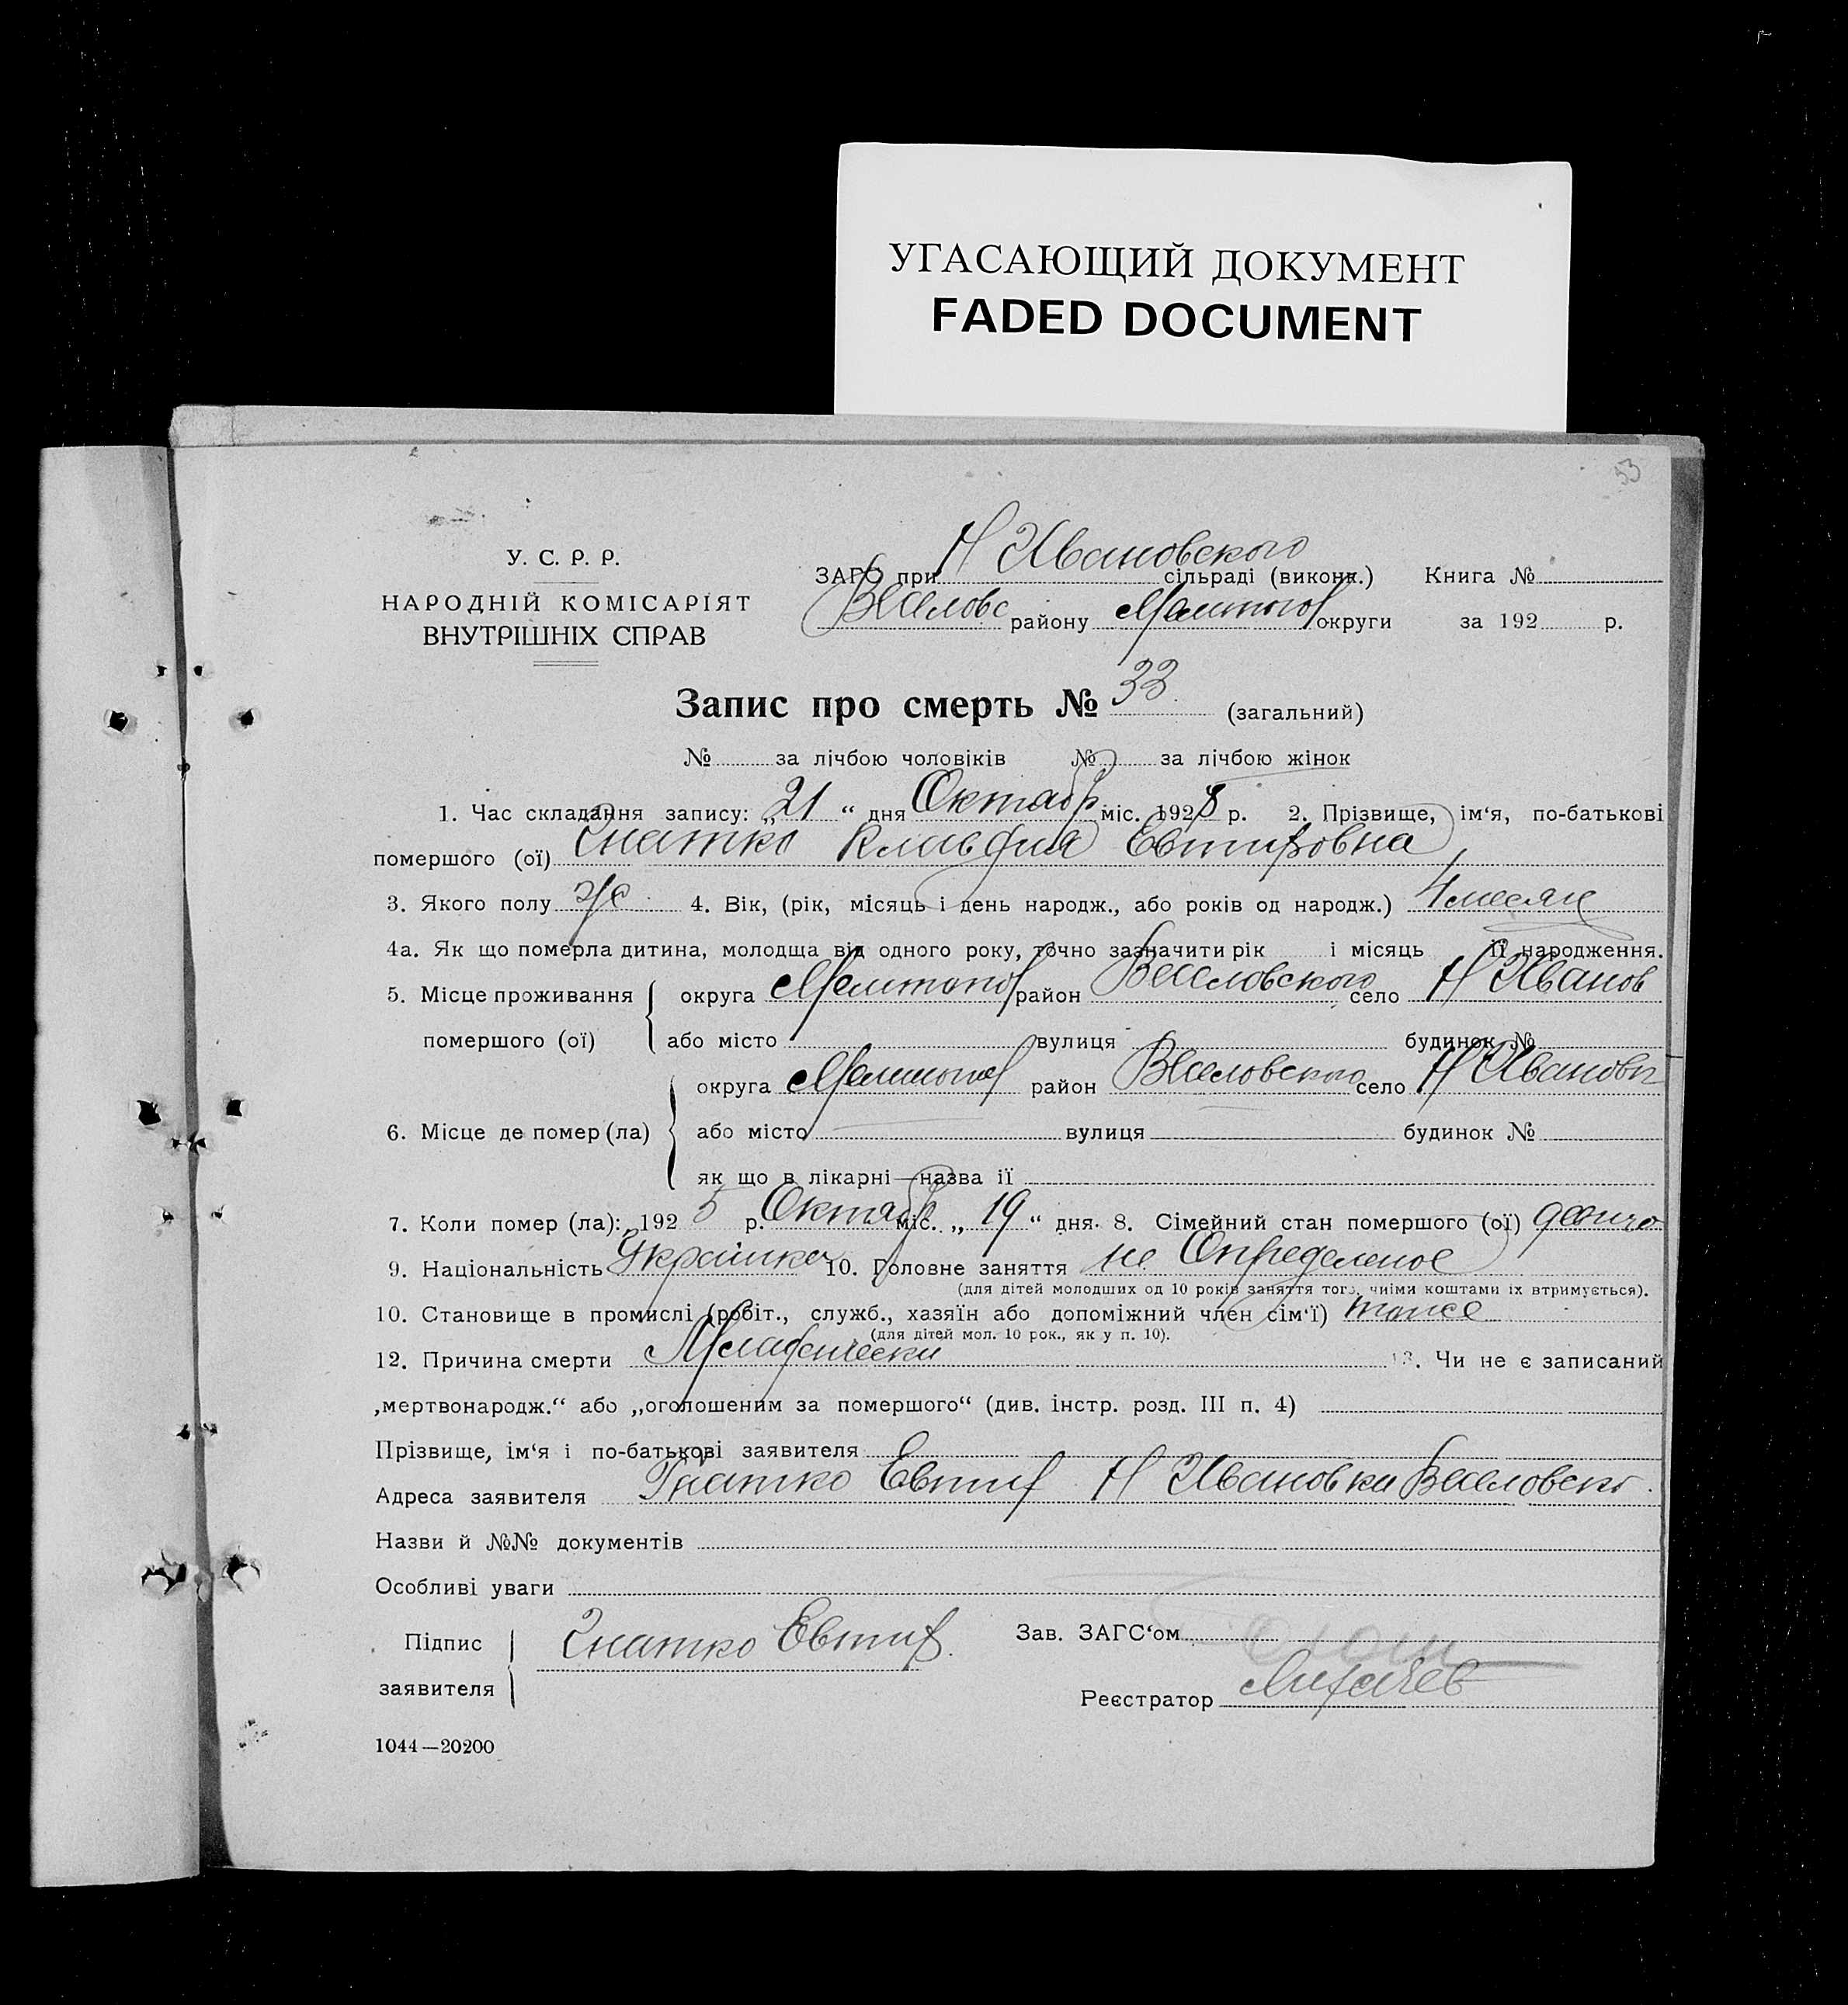 УГАСАЮЩИЙ ДОКУМЕНТ
FADED DOCUMENT
53
У. С. Р. Р.
НАРОДНІЙ КОМІСАРІЯТ
ВНУТРІШНІХ СПРАВ
ЗАГС при Н Ивановского сільраді (виконк.) Книга №
Веселовс району Мелитопол округи за 192 р.
Запис про смерть № 33 (загальний)
№ за лічбою чоловіків № за лічбою жінок
1. Час складання запису: „21“ дня Октябр міс. 1928 р. 2. Прізвище, ім‘я, по-батькові
помершого (ої) Гнатко Клавдия Евтифовна
3. Якого полу ж 4. Вік, (рік, місяць і день народж., або років од народж.) 4 месяц
4а. Як що померла дитина, молодща від одного року, точно зазначити рік і місяць її народження.
5. Місце проживання округа Мелитопол район Веселовского село Н Иванов
помершого (ої) або місто вулиця будинок №
округа Мелитопол район Веселовского село Н Ивановк
6. Місце де помер (ла) або місто вулиця будинок №
як що в лікарні—назва ії
7. Коли помер (ла): 192 5 р. Октябр міс. „19“ дня. 8. Сімейний стан помершого (ої)
9. Національність Украинка 10. Головне заняття не Определеное
(для дітей молодших од 10 років заняття того, чиїми коштами їх втримується).
10. Становище в промислі (робіт., служб., хазяїн або допоміжний член сім‘ї) тоже
(для дітей мол. 10 рок., як у п. 10).
12. Причина смерти Младенчески 13. Чи не є записаний
„мертвонародж.“ або „оголошеним за помершого“ (див. інстр. розд. III п. 4)
Прізвище, ім‘я і по-батькові заявителя
Адреса заявителя Гнатко Евтиф Н Ивановка Веселовско
Назви й №№ документів
Особливі уваги
Підпис заявителя Гнатко Евтиф. Зав. ЗАГС‘ом
Реєстратор Лихачев
1044—20200